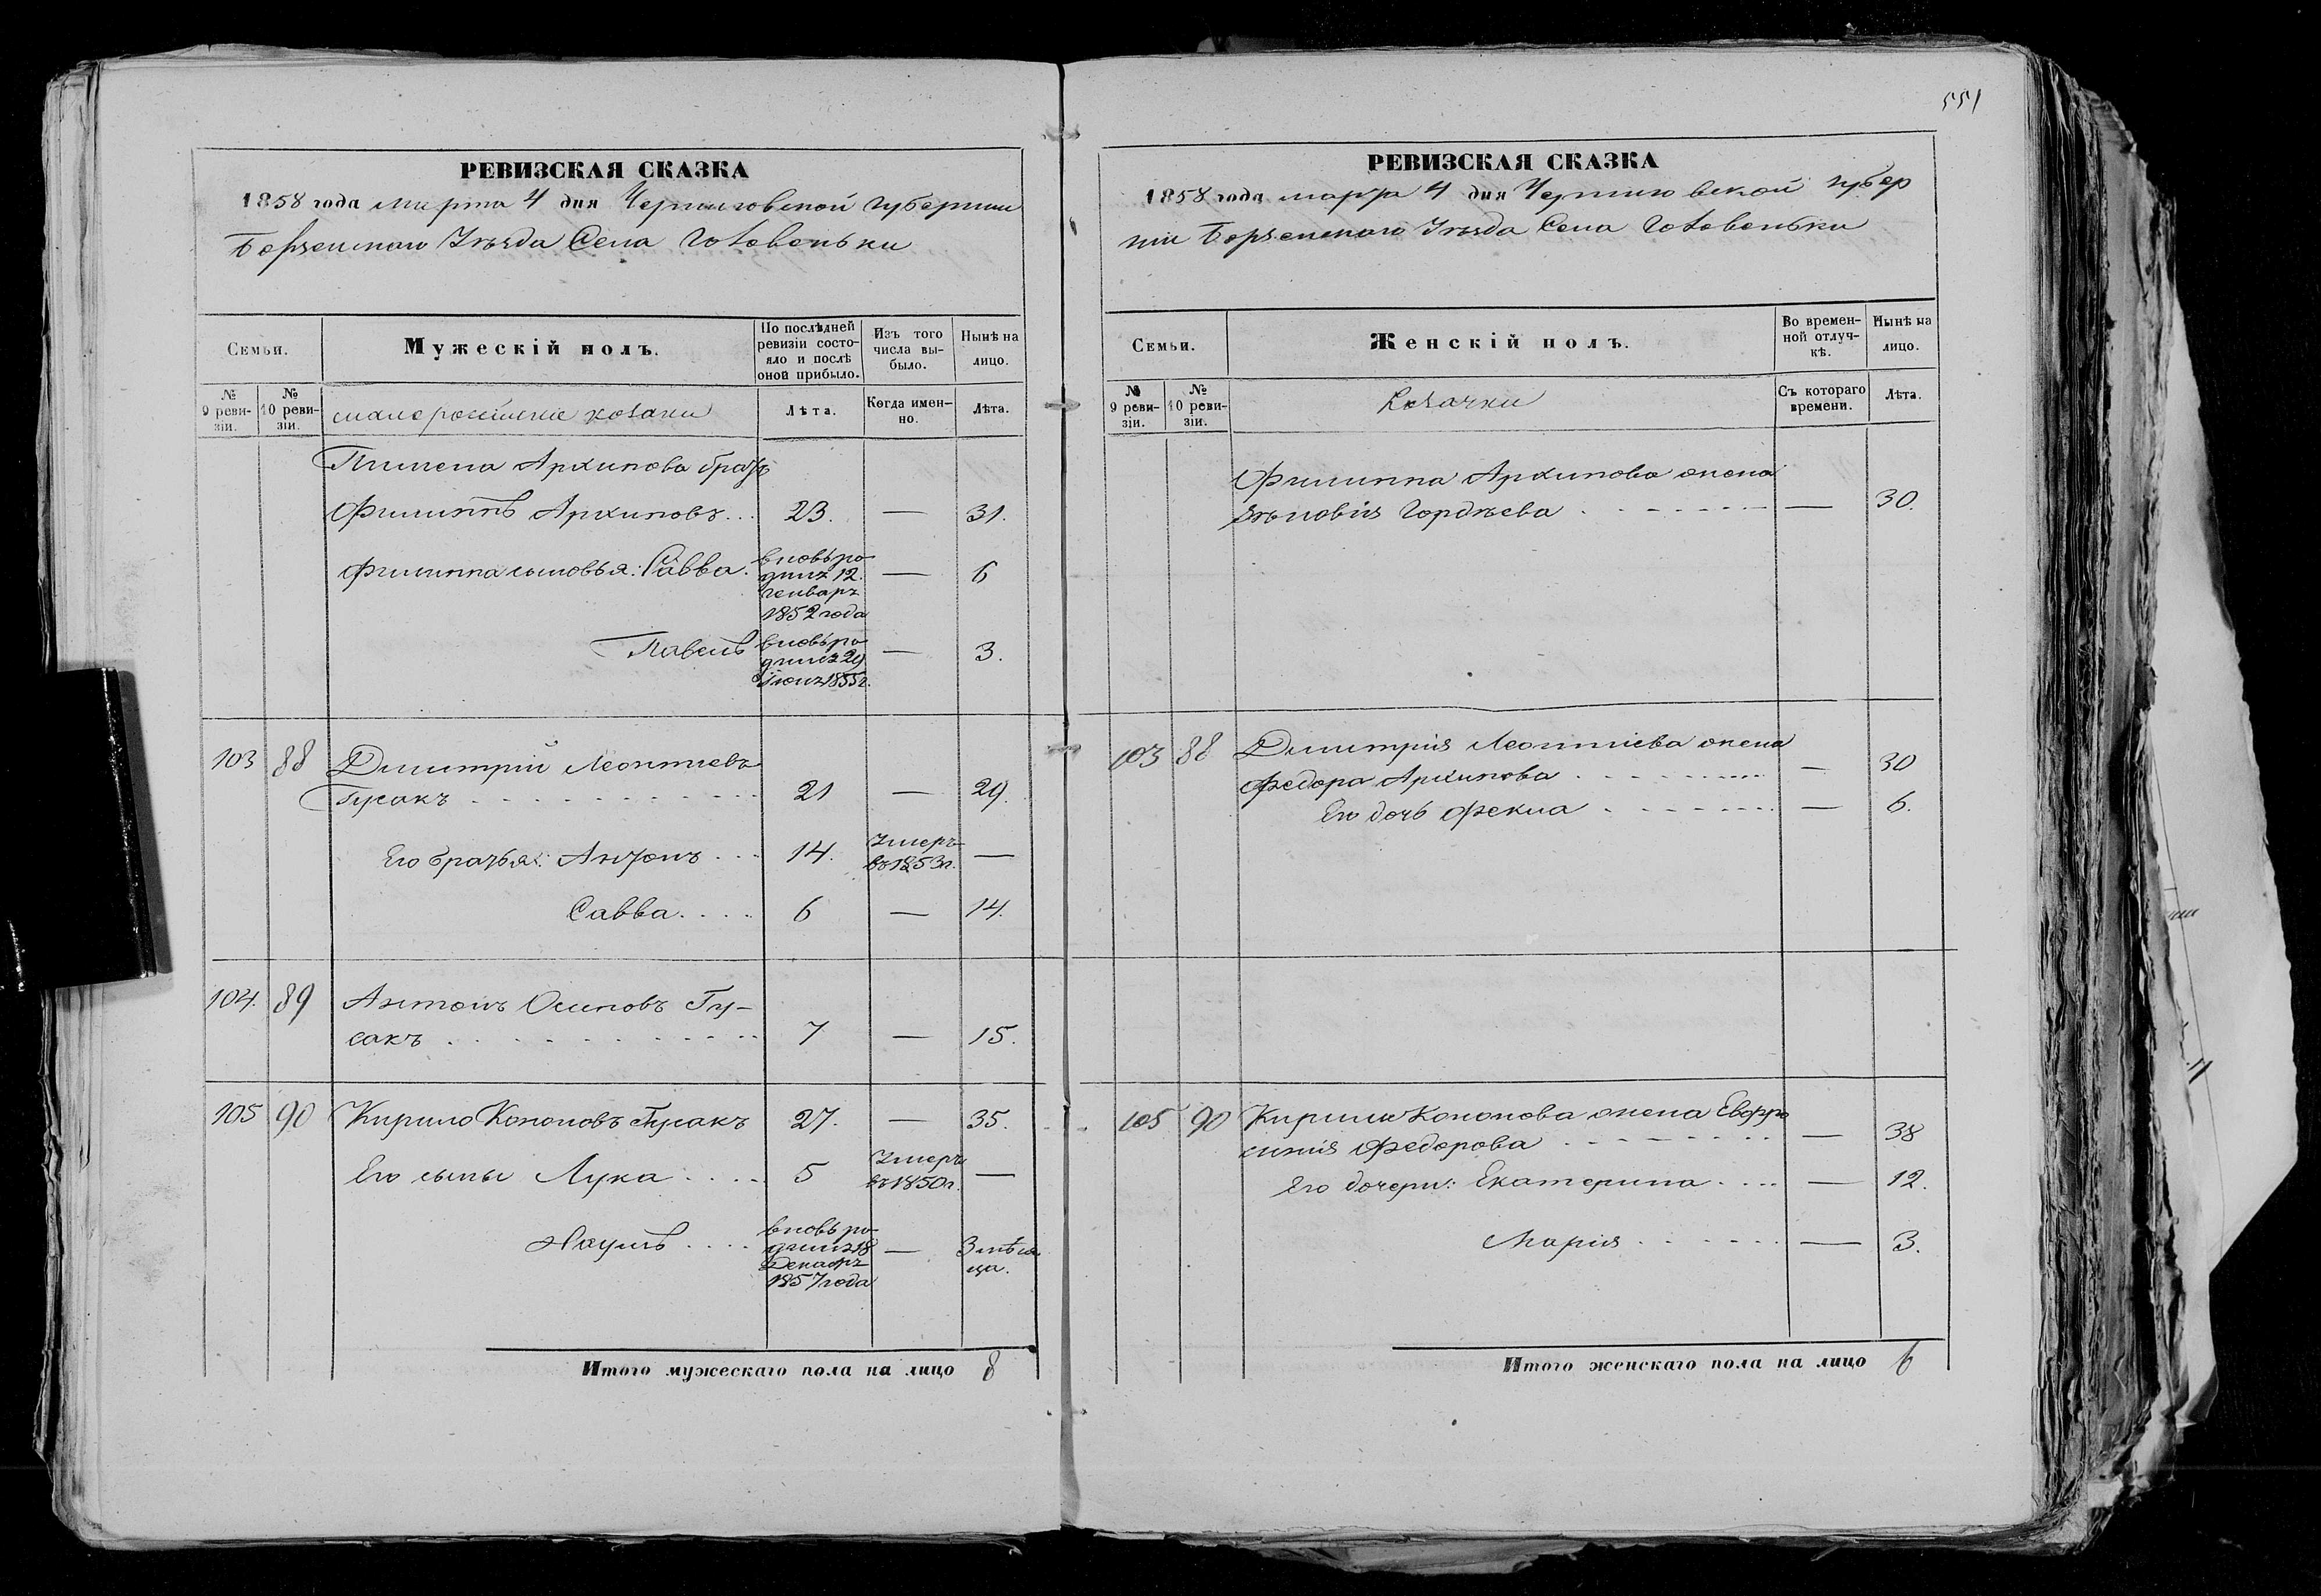 551
РЕВИЗСКАЯ СКАЗКА
1858 года марта 4 дня Черниговской губернии
Борзенского Уѣзда Села
Семьи.
Мужескій полъ.
По послѣдней ревизіи состояло и послѣ оной прибыло.
Изъ того числа выбыло.
Нынѣ на лицо.
№ 9 ревизіи.
№ 10 ревизіи.
малороссійские козаки
Лѣта.
Когда именно.
Лѣта.
Пимена Архипова братъ
Филиппъ Архиповъ... 23. — 31.
Филиппа сыновья: Савва. вновь родился 12 генваря 1852 года — 6
Павелъ вновь родился 29 1855 г. — 3.
103 88 Димитрій Леонтиевъ
Гусакъ 21 — 29.
Его братья: Антонъ... 14. Умеръ въ 1853 г. —
Савва.... 6 — 14.
104. 89 Антонъ Осиповъ Гу-
сакъ 7 — 15.
105 90 Кирило Кононовъ Гусакъ 27. — 35.
Его сыны Лука.... 5 Умеръ въ 1850 г. —
Наумъ.... вновь родился 18 Декабря 1857 года — 3 мѣсяца.
Итого мужескаго пола на лицо 8
РЕВИЗСКАЯ СКАЗКА
1858 года марта 4 дня Черниговской губер
нии Борзенского Уѣзда Села
Семьи.
Женскій полъ.
Во временной отлучкѣ.
Нынѣ на лицо.
№ 9 ревизіи.
№ 10 ревизіи.
Козачки
Съ котораго времени.
Лѣта.
Филиппа Архипова жена
Зѣновія Гордѣева — 30.
103 88 Димитрія Леонтіева жена
Федора Архипова — 30
Его дочь Фекла — 6.
105 90 Кирила Кононова жена Евфро
синія Федорова — 38
Его дочери: Екатерина.... — 12.
Марія — 3.
Итого женскаго пола на лицо 6